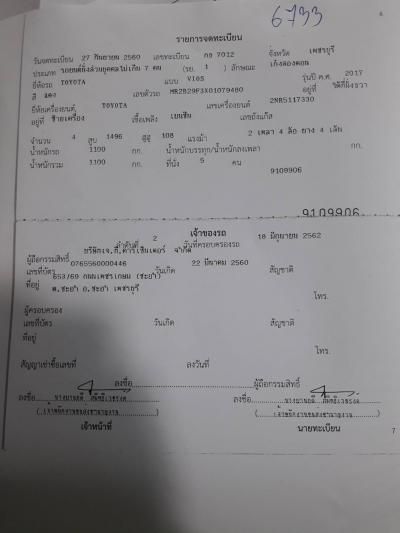 6733
6
รายการจดทะเบียน
วันจดทะเบียน 27 กันยายน 2560 เลขทะเบียน กย 7012 จังหวัด เพชรบุรี
ประเภท รถยนต์นั่งส่วนบุคคลไม่เกิน 7 คน (รย. 1 ) ลักษณะ เก๋งสองตอน
ยี่ห้อรถ TOYOTA แบบ VIOS รุ่นปี ค.ศ. 2017
สี แดง เลขตัวรถ MR2B29F3X01079480 อยู่ที่
ยี่ห้อเครื่องยนต์ TOYOTA เลขเครื่องยนต์ 2NR5117330
อยู่ที่ ซ้ายเครื่อง เชื้อเพลิง เบนซิน เลขถังแก๊ส
จำนวน 4 สูบ 1496 ซีซี 108 แรงม้า 2 เพลา 4 ล้อ ยาง 4 เส้น
น้ำหนักรถ 1100 กก. น้ำหนักบรรทุก/น้ำหนักลงเพลา กก.
น้ำหนักรวม 1100 กก. ที่นั่ง 5 คน
9109906
9109906
เจ้าของรถ
ลำดับที่ 2 วันที่ครอบครองรถ 18 มิถุนายน 2562
ผู้ถือกรรมสิทธิ์ บริษัทเจ.ที.คาร์เซ็นเตอร์ จำกัด
เลขที่บัตร 0765560000446 วันเกิด 22 มีนาคม 2560 สัญชาติ
ที่อยู่ 653/69 ถนนเพชรเกษม (ชะอำ)
ต.ชะอำ อ.ชะอำ เพชรบุรี
โทร.
ผู้ครอบครอง
เลขที่บัตร วันเกิด สัญชาติ
ที่อยู่
โทร.
สัญญาเช่าซื้อเลขที่ ลงวันที่
ลงชื่อ ผู้ถือกรรมสิทธิ์
ลงชื่อ ลงชื่อ
(เจ้าพนักงานขนส่งชำนาญงาน) (เจ้าพนักงานขนส่งชำนาญงาน)
เจ้าหน้าที่ นายทะเบียน
7